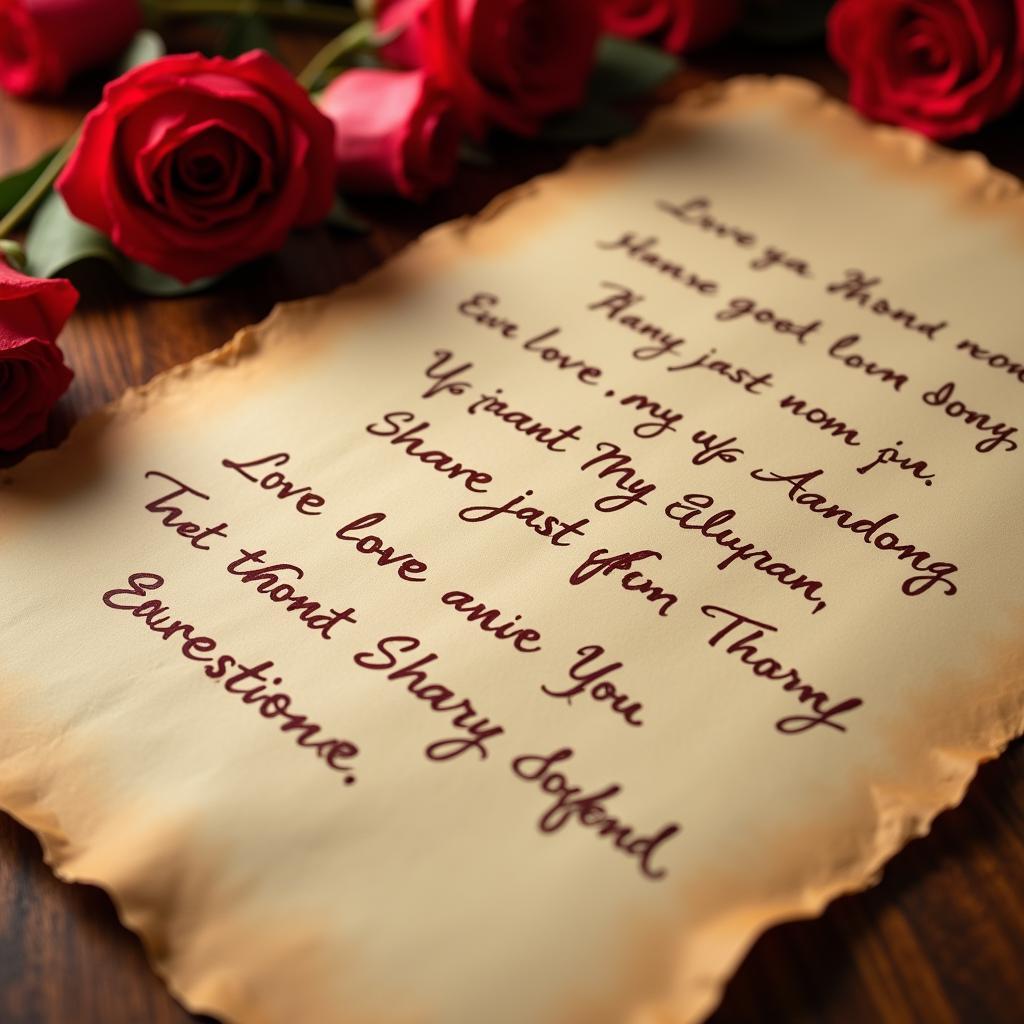 Love ya Thond now
Hanse good lovn Dony
Many jast nom jn.
Ewe love. my up Aandong
Up jaant My Eilupran,
Share jast yfun Thormy
Love love anie You
Thet thont Shary Sofend
Earestione.